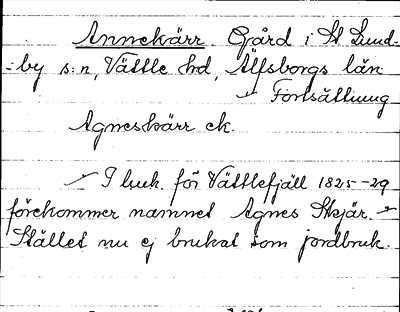 Annekärr. Gård i St Lund-
by s:n, Vättle hd, Älfsborgs län
Fortsättning
Agneskärr ek.
I huk. för Vättlefjäll 1825-29
förekommer namnet Agnes Skjär.
Stället nu ej brukat som jordbruk.